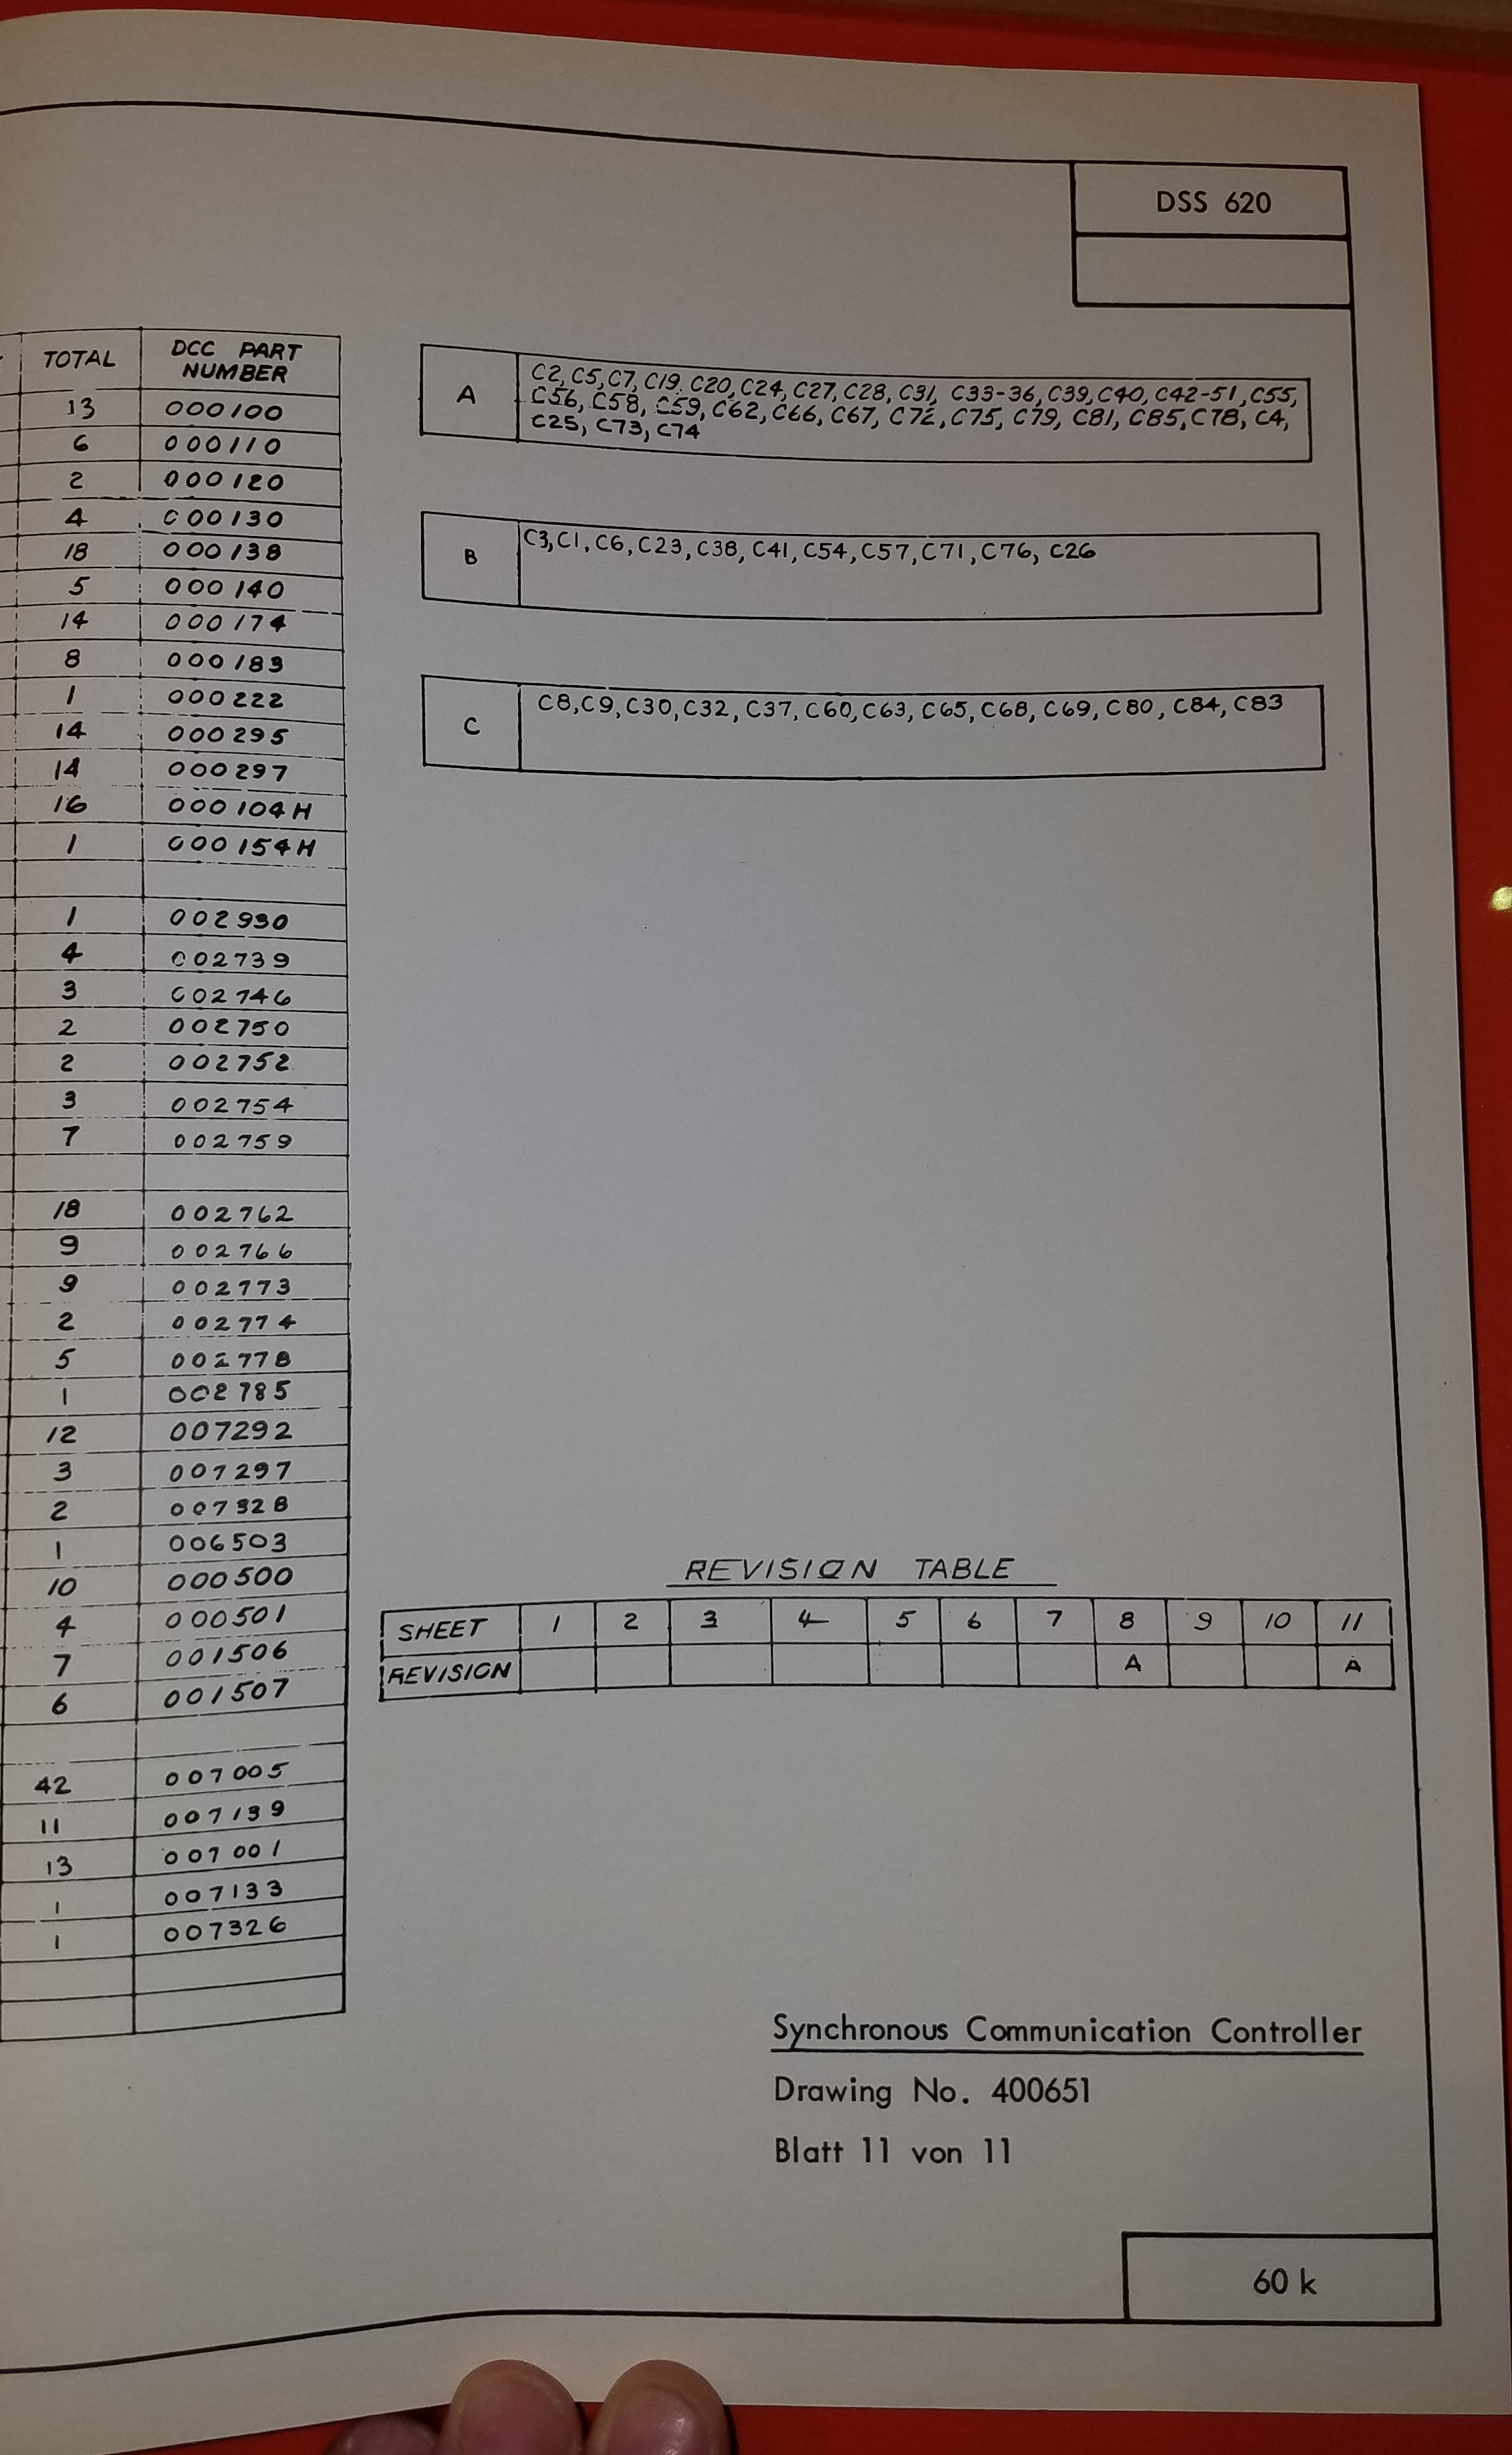 DSS 620
TOTAL DCC PART NUMBER
13 000100
6 000110
2 000120
4 000130
18 000138
5 000140
14 000174
8 000183
1 000222
14 000295
14 000297
16 000104H
1 000154H
1 002930
4 002739
3 002746
2 002750
2 002752
3 002754
7 002759
18 002762
9 002766
9 002773
2 002774
5 002778
1 002785
12 007292
3 007297
2 007328
1 006503
10 000500
4 000501
7 001506
6 001507
42 007005
11 007139
13 007001
1 007133
1 007326
A
C2, C5, C7, C19, C20, C24, C27, C28, C31, C33-36, C39, C40, C42-51, C55,
C56, C58, C59, C62, C66, C67, C72, C75, C79, C81, C85, C78, C4,
C25, C73, C74
B
C3, C1, C6, C23, C38, C41, C54, C57, C71, C76, C26
C
C8, C9, C30, C32, C37, C60, C63, C65, C68, C69, C80, C84, C83
REVISION TABLE
SHEET 1 2 3 4 5 6 7 8 9 10 11
REVISION A A
Synchronous Communication Controller
Drawing No. 400651
Blatt 11 von 11
60 k